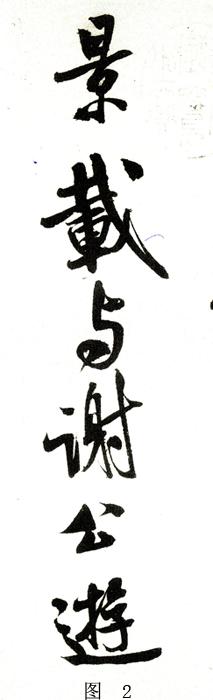 景載与谢公遊
图 2